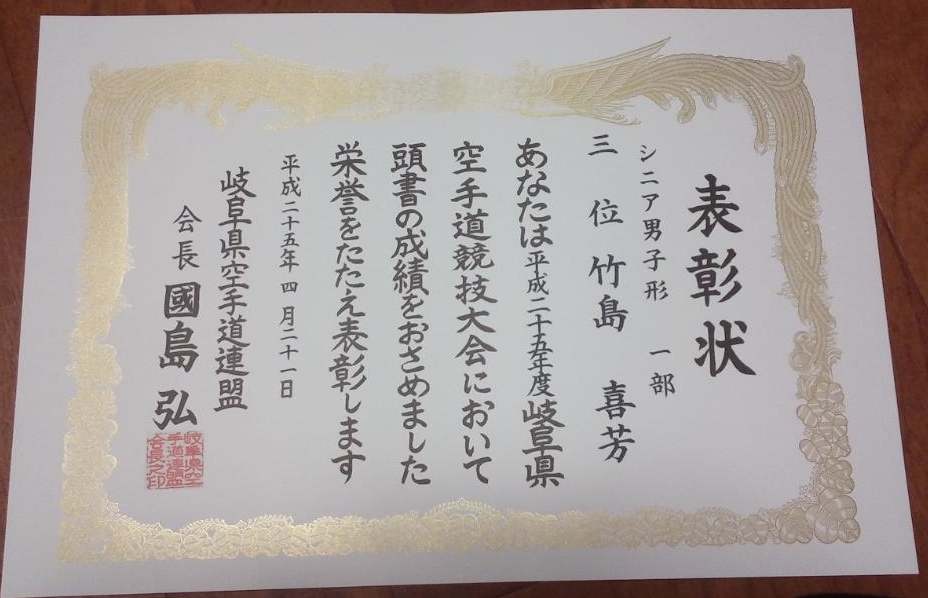 表彰状
シニア男子形 一部
三位 竹島 喜芳
あなたは平成二十五年度岐阜県
空手道競技大会において
頭書の成績をおさめました
栄誉をたたえ表彰します
平成二十五年四月二十一日
岐阜県空手道連盟
会長 國島 弘
岐阜県空
手道連盟
会長之印